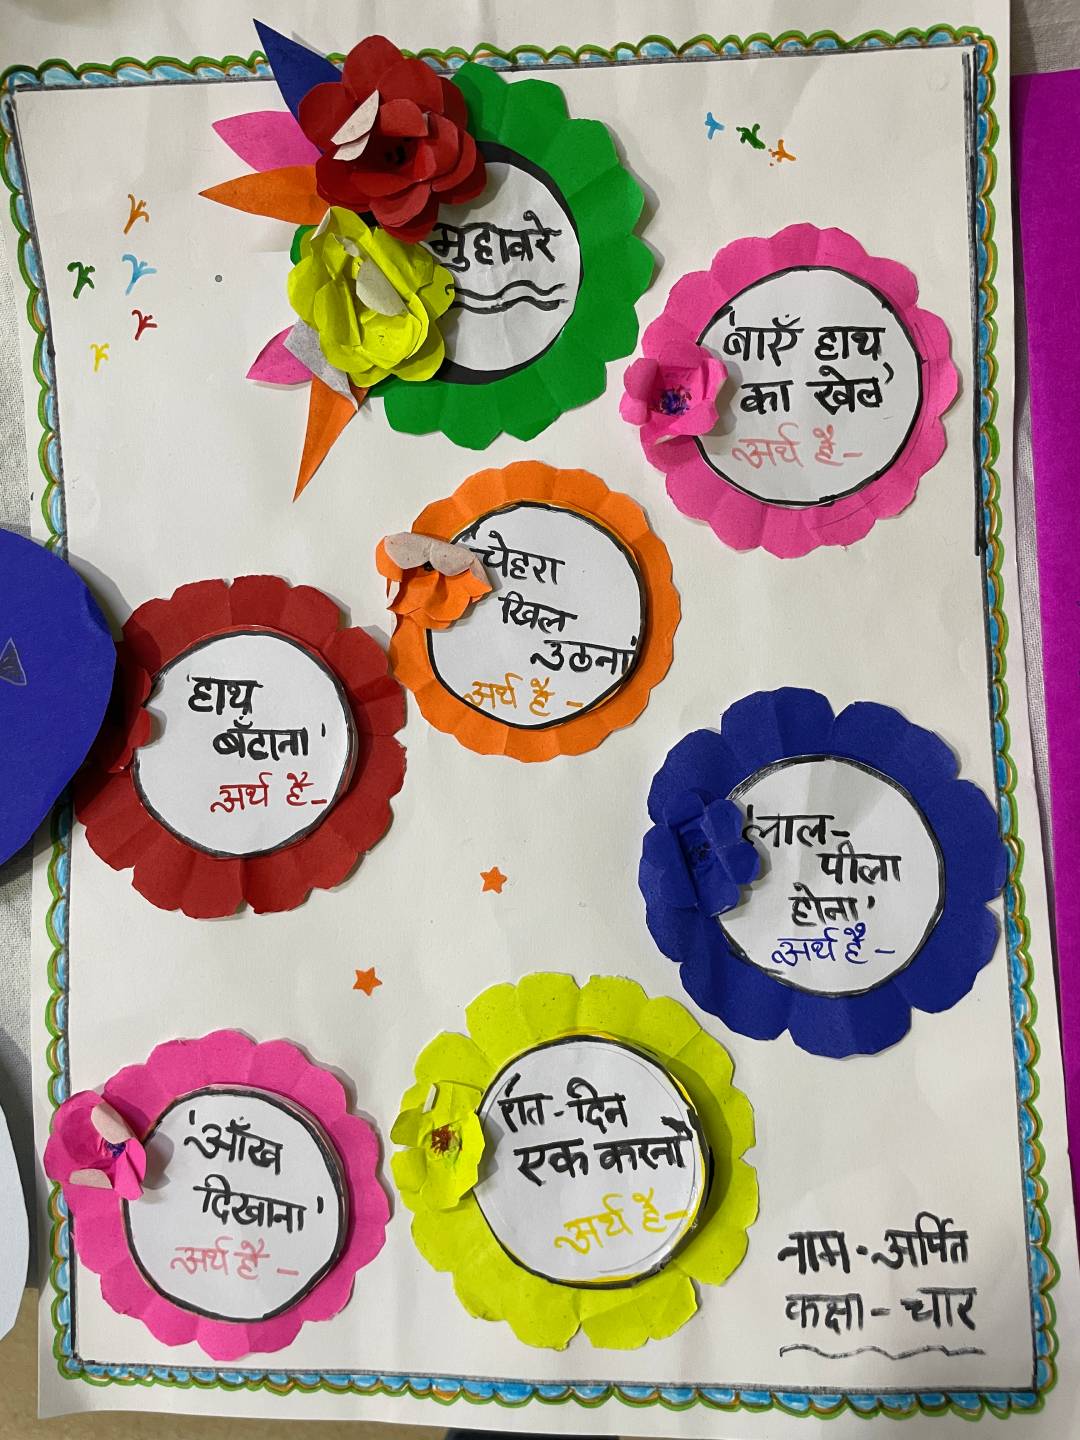 मुहावरे
'बाएँ हाथ
का खेल'
अर्थ है-
'चेहरा
खिल
उठना'
अर्थ है -
'हाथ
बँटाना'
अर्थ है-
'लाल-
पीला
होना'
अर्थ है -
'आँख
दिखाना'
अर्थ है -
'रात-दिन
एक करना'
अर्थ है-
नाम - अर्पित
कक्षा - चार